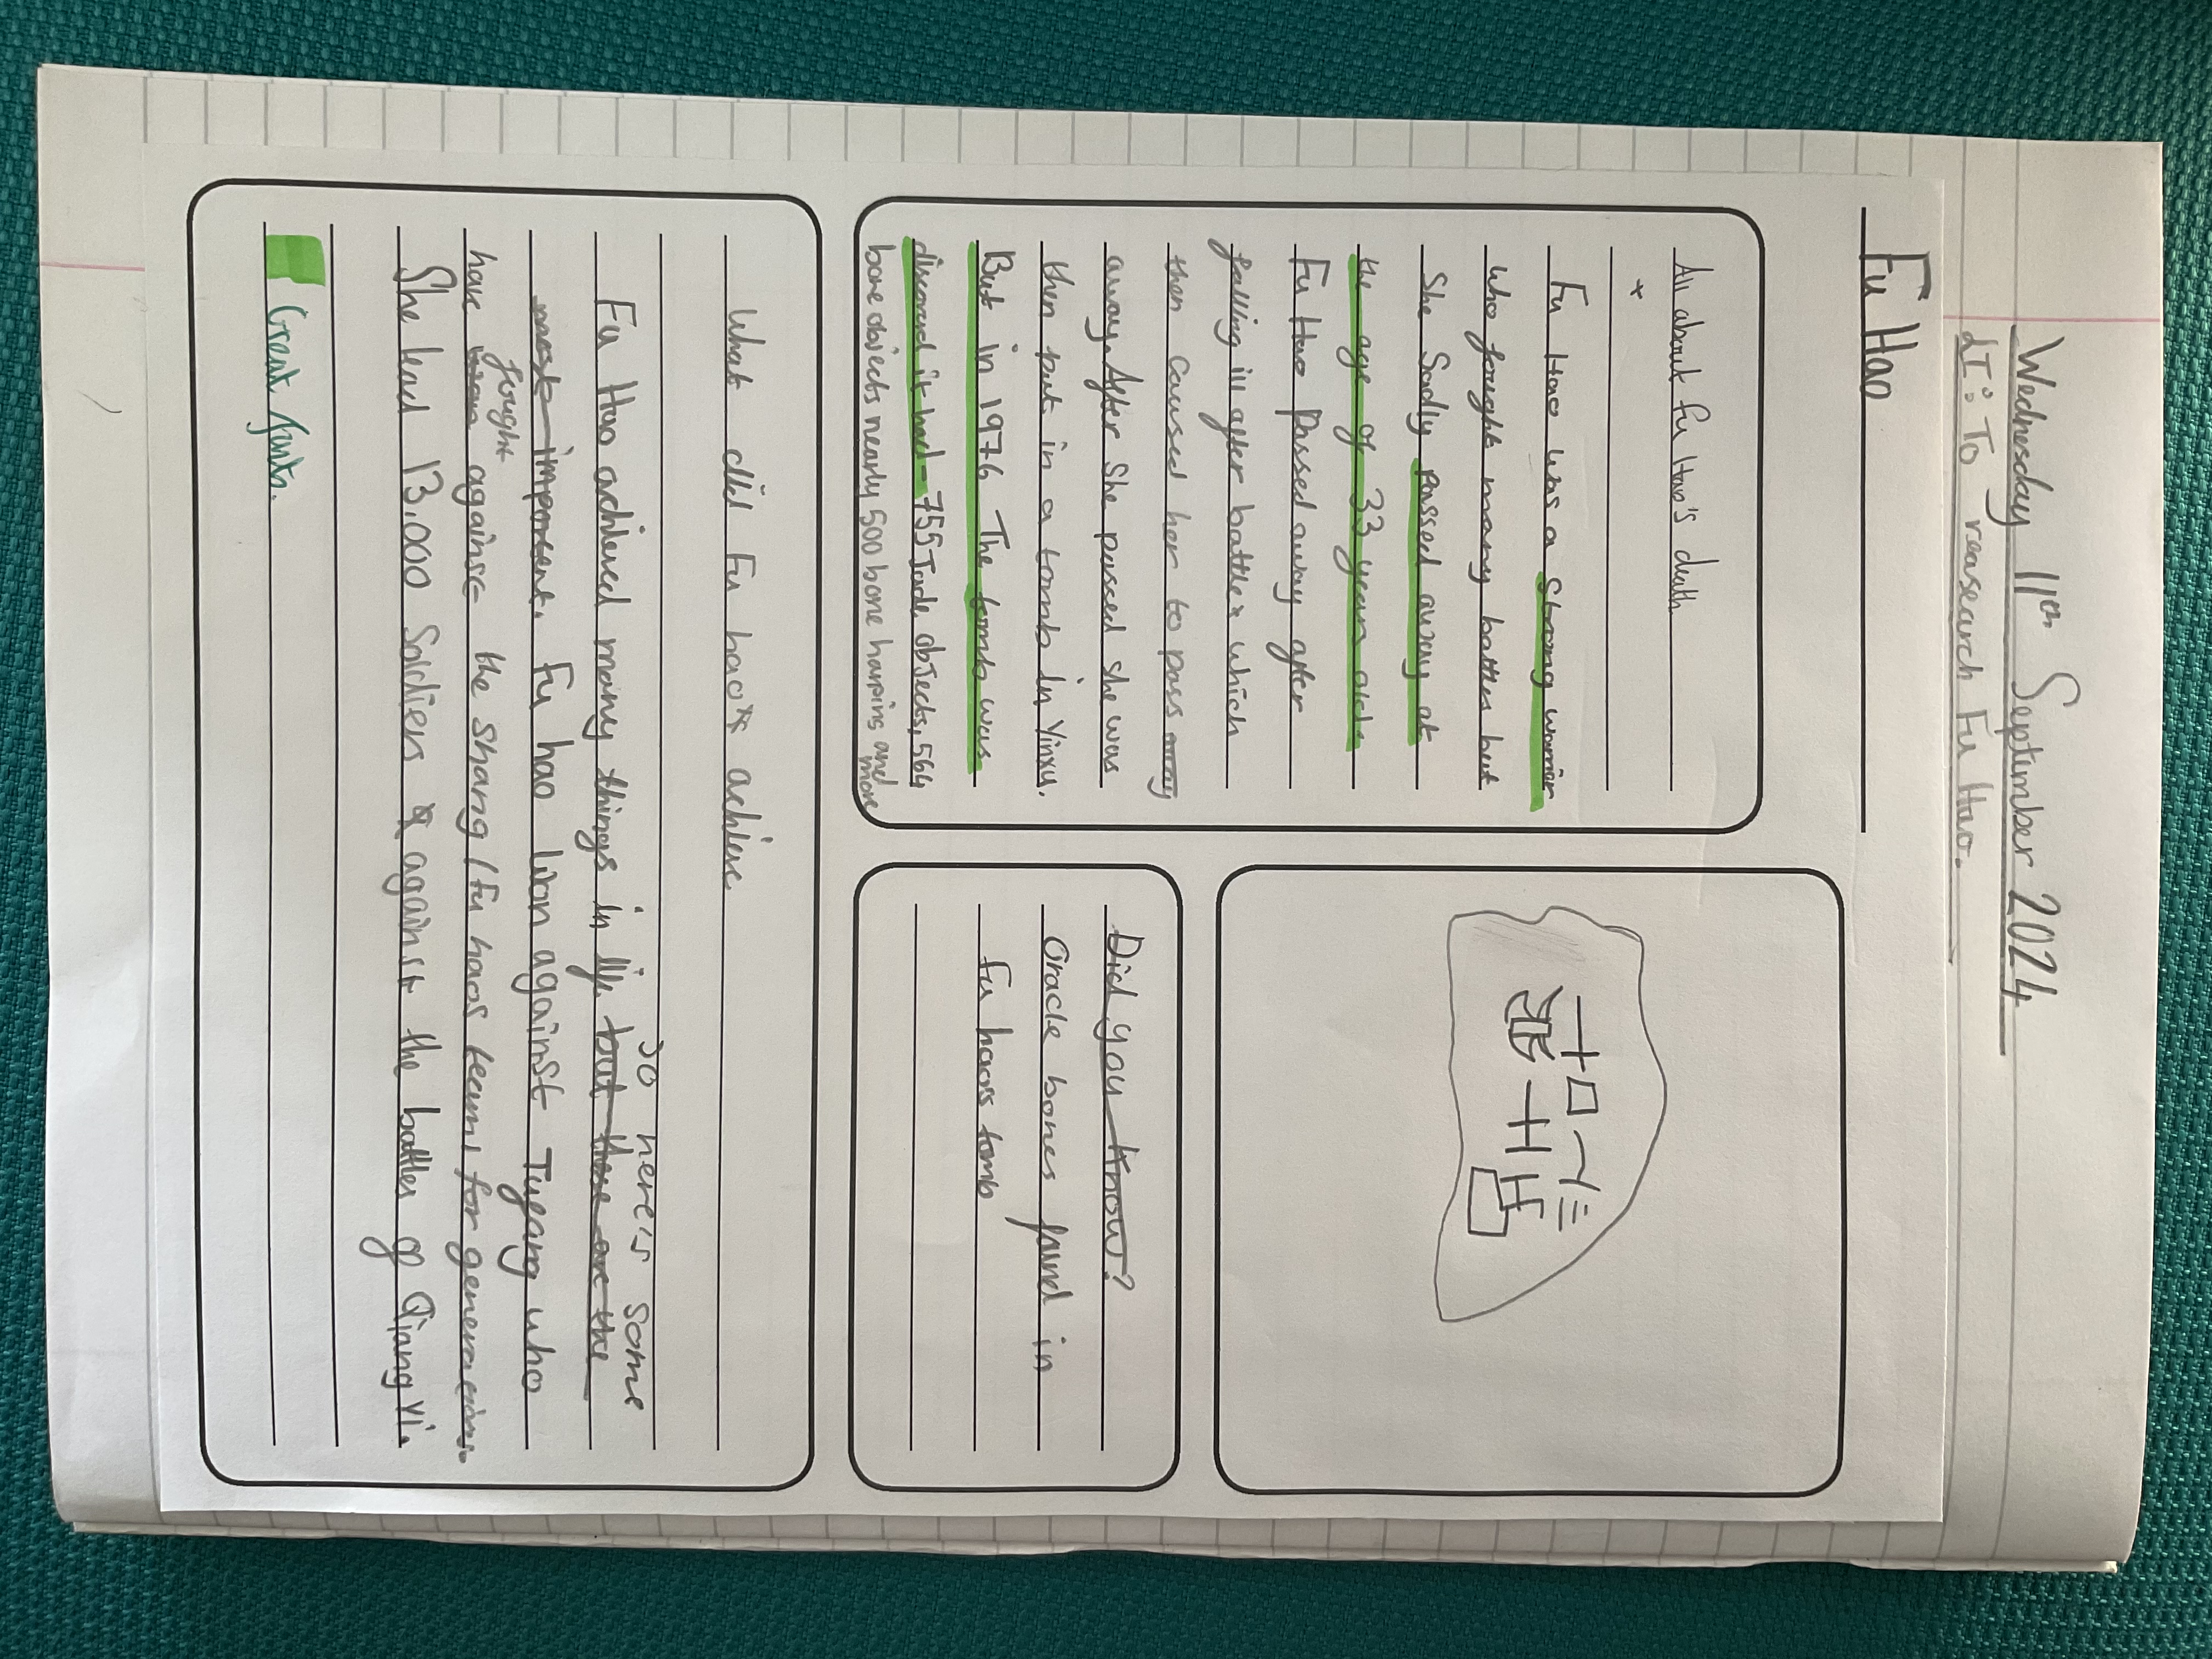 Wednesday 11th September 2024
LI: To reasearch Fu Hao.
Fu Hao
All about Fu Hao's death
Fu Hao was a strong warrior
who fought many battles but
She Sadly passed away at
the age of 33 years old.
Fu Hao passed away after
falling ill after battle which
then caused her to pass away
away. After She passed she was
then put in a tomb in Yinxu.
But in 1976 The tomb was
discoverd it had - 755 Jade objects, 564
bone objects nearly 500 bone hairpins and
more
Did you know?
Oracle bones found in
fu haos tomb
What did Fu hao achieve
so here's some
Fu Hao achieved many things in life but these are the
most important. Fu hao won against Tufang who
fought
have against the shang / fu haos team for generations.
She lead 13,000 Soldiers against the battles of Qiang Yi.
Great facts.